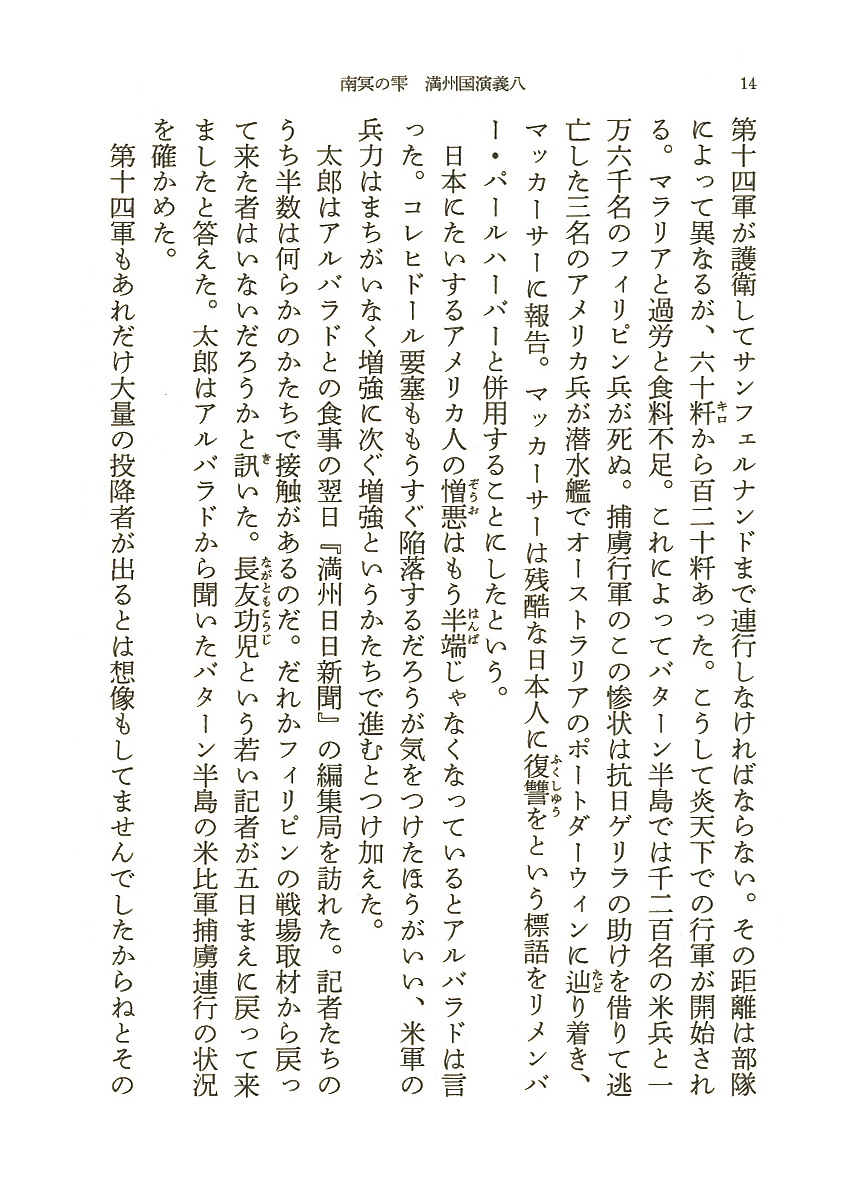 南冥の雫　満州国演義八
14
第十四軍が護衛してサンフェルナンドまで連行しなければならない。その距離は部隊
によって異なるが、六十粁から百二十粁あった。こうして炎天下での行軍が開始され
る。マラリアと過労と食料不足。これによってバターン半島では千二百名の米兵と一
万六千名のフィリピン兵が死ぬ。捕虜行軍のこの惨状は抗日ゲリラの助けを借りて逃
亡した三名のアメリカ兵が潜水艦でオーストラリアのポートダーウィンに辿り着き、
マッカーサーに報告。マッカーサーは残酷な日本人に復讐をという標語をリメンバ
ー・パールハーバーと併用することにしたという。
　日本にたいするアメリカ人の憎悪はもう半端じゃなくなっているとアルバラドは言
った。コレヒドール要塞ももうすぐ陥落するだろうが気をつけたほうがいい、米軍の
兵力はまちがいなく増強に次ぐ増強というかたちで進むとつけ加えた。
　太郎はアルバラドとの食事の翌日『満州日日新聞』の編集局を訪れた。記者たちの
うち半数は何らかのかたちで接触があるのだ。だれかフィリピンの戦場取材から戻っ
て来た者はいないだろうかと訊いた。長友功児という若い記者が五日まえに戻って来
ましたと答えた。太郎はアルバラドから聞いたバターン半島の米比軍捕虜連行の状況
を確かめた。
　第十四軍もあれだけ大量の投降者が出るとは想像もしてませんでしたからねとその